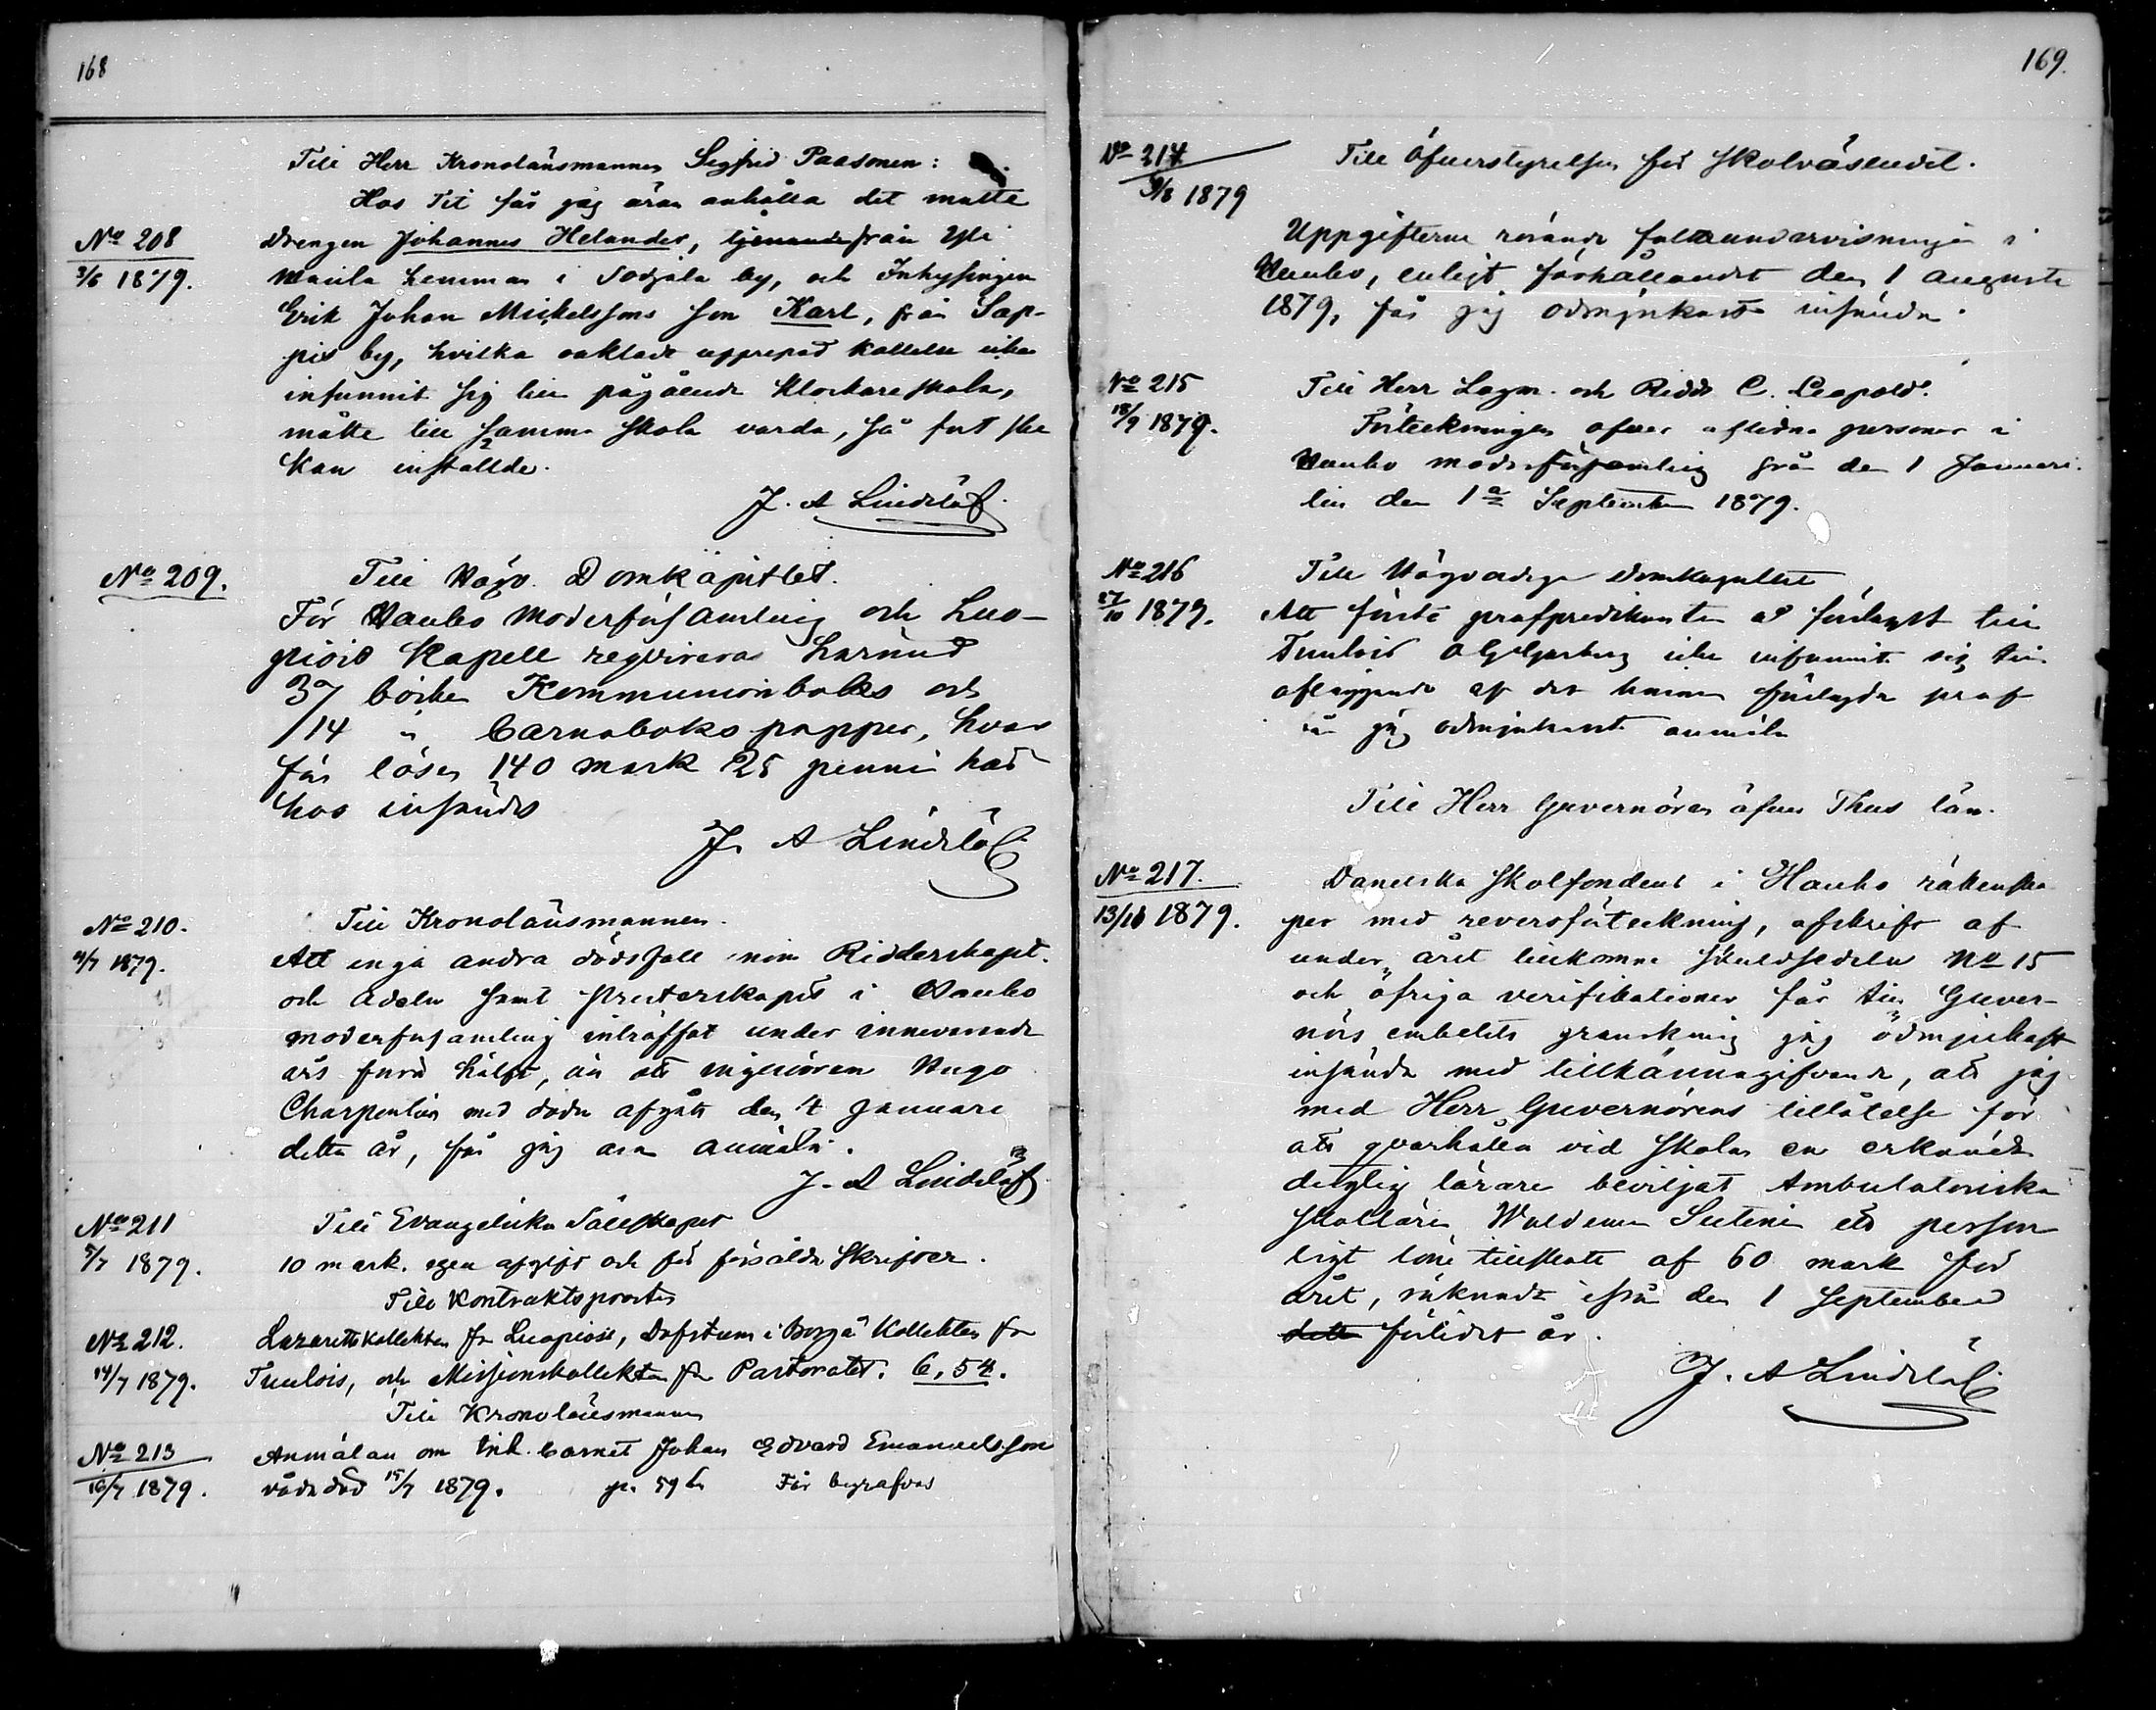 168
Till Herr Kronolänsmannen Sigfrid Paasonen:
Hos Tit får jag äran anhålla det måtte
No 208
3/6 1879.
drengen Johannes Helander, tjenande från Yli
Maula hemman i Sodjala by, och Inhysingen
Erik Johan Mickelssons son Karl, från Sap-
pis by, hvilka oaktadt upprepad kallelse icke
infunnit sig till pågående Klockareskola,
måtte till samma skola varda, så fort ske
kan inställde.
J. A Lindelöf.
No 209.
Till Högv. Domkapitlet.
För Hauho Moderförsamling och Luo-
piois Kapell reqvireras härmed
37 böcker Kommunionboks och
/14 " barnaboks papper, hvar
för lösen 140 mark 25 penni här
hos insändes
J. A Lindelöf
No 210.
4/7 1879.
Till Kronolänsmannen.
Att inga andra dödsfall inom Ridderskapet.
och Adeln samt Presterskapet i Hauho
moderförsamling inträffat under innevarande
års förra hälft, än att ingeniören Hugo
Charpentier med döden afgått den 4 Januari
detta år, får jag äran anmäla.
J. A Lindelöf
No 211
5/7 1879.
Till Evangeliska Sällskapet
10 mark. egen afgift och för försålda Skrifter.
Till Kontraktsprosten
No 212.
14/7 1879.
Lazarettskollekten fr Luopiois, Dofstum i Borgå Kollekten fr
Tuulois, och Missionskollekten fr Pastoratet. 6,54.
Till Kronolänsmannen
No 213
16/7 1879.
Anmälan om Inh. barnet Johan Edvard Emanuelsson
våda död 15/7 1879. p. 596 Får begrafvas
169.
No 214
9/8 1879
Till Öfverstyrelsen för Skolväsendet.
Uppgifterna rörande folkundervisningen i
Hauho, enligt förhållandet den 1 Augusti
1879, får jag ödmjukast insända.
No 215
18/9 1879.
Till Herr Lagm. och Ridd. C. Leopold.
Förteckningen öfver aflidne personer i
Hauho moderförsamling från den 1 Januari
till den 1a September 1879.
No 216
27/10 1879.
Till Högvördiga Domkapitlet
Att förste profpredikanten å förslaget till
Tuulois icke infunnit sig till
afläggande af det honom förelagda prof
får jag ödmjukast anmäla
Till Herr Guvernören öfver Thus län.
No 217.
13/10 1879.
Danelska Skolfondens i Hauho räkenska
per med reversförteckning, afskrift af
under året tillkomne skuldsedeln No 15
och öfriga verifikationer får till Guver-
nörs embetets granskning jag ödmjukast
insända med tillkännagifvande, att jag
med Herr Guvernörens tillåtelse för
att qvarhålla vid skolan en erkändt
duglig lärare beviljat Ambulatoriska
skollären Waldemar ett person
ligt löne tillskott af 60 mark för
året, räknadt ifrån den 1 September
detta förlidet år.
J. A Lindelöf